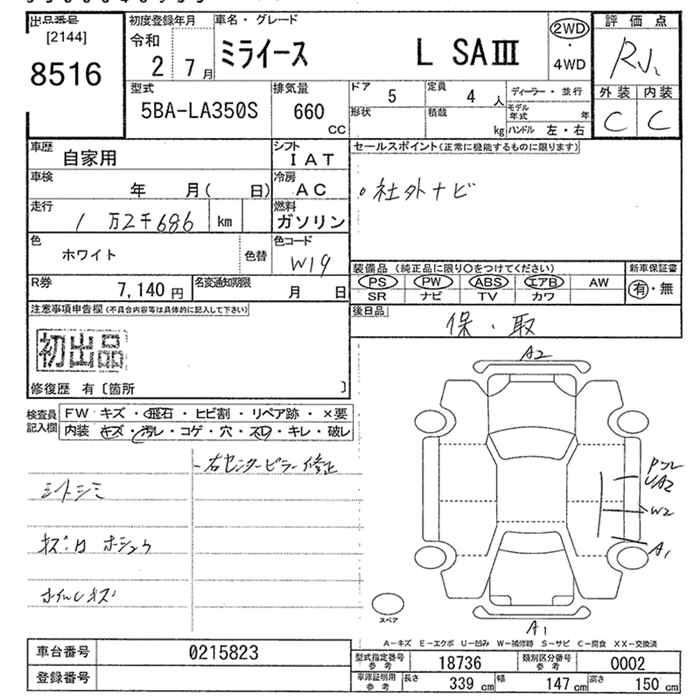 出品番号
[2144]
8516
初度登録年月
令和
2 7月
車名・グレード
ミライース L SAⅢ
2WD
・
4WD
評価点
外装 内装
C C
型式
5BA-LA350S
排気量
660
CC
ドア 5
定員 4 人
形状
積載 kg
ディーラー・並行
モデル年式 年
ハンドル 左・右
車歴
自家用
シフト
IAT
車検
年 月( 日)
冷房
AC
走行
1万2千686 km
燃料
ガソリン
色
ホワイト
色替
色コード
W19
R券
7,140円
名変通知期限
月 日
セールスポイント(正常に機能するものに限ります)
・社外ナビ
装備品(純正品に限り○をつけてください)
新車保証書
PS PW ABS エアB AW
有・無
SR ナビ TV カワ
後日品
保・取
注意事項申告欄(不具合内容等は具体的に記入して下さい)
初出品
修復歴 有〔箇所 〕
検査員記入欄
FW キズ・飛石・ヒビ割・リペア跡・×要
内装 キズ・汚レ・コゲ・穴・スレ・キレ・破レ
右センターピラー修正
シートシミ
ホイルキズ
A2
UA2
W2
A1
A1
スペア
A-キズ E-エクボ U-凹み W-補修跡 S-サビ C-腐食 XX-交換済
車台番号 0215823
登録番号
型式指定番号 参考 18736
類別区分番号 参考 0002
車庫証明用 参考
長さ 339 cm
幅 147 cm
高さ 150 cm